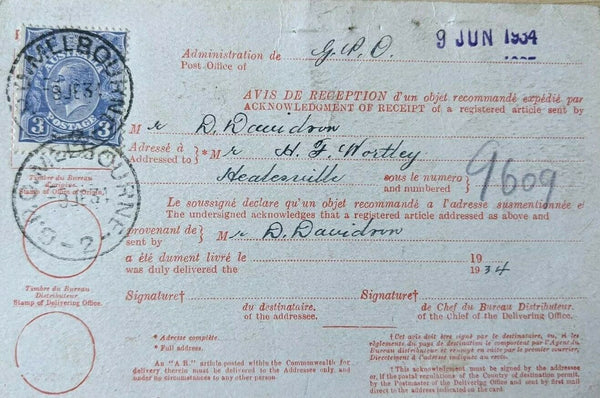 Administration de
Post Office of
G.P.O.
9 JUN 1934
MELBOURNE
POSTAGE
3 3
AVIS DE RECEPTION d'un objet recommandé expédié par
ACKNOWLEDGMENT OF RECEIPT of a registered article sent by
Mr D. Davidson
Adressé à
Addressed to
* Mr H. F. Wortley
Healesville
sous le numero
and numbered
9609
MELBOURNE
Timbre du Bureau
d'origine.
Stamp of Office of Origin.
Le soussigné declare qu'un objet recommandé à l'adresse susmentionnée et
The undersigned acknowledges that a registered article addressed as above and
provenant de
sent by
Mr D. Davidson
a été dument livré le 19
was duly delivered the 1934
Timbre du Bureau
Distributeur
Stamp of Delivering Office.
Signature† Signature†
du destinataire. de Chef du Bureau Distributeur.
of the addressee. of the Chief of the Delivering Office.
* Adresse complète.
* Full address.
An "A R." article posted within the Commonwealth for
delivery therein will be delivered to the Addressee only, and
under no circumstances to any other person.
† Cet avis doit être signé par le destinataire, ou, si les
règlements du pays de destination le comportent par l'Agent du
Bureau distributeur et renvoyé en suite par le premier courrier,
Directement à l'adresse indiquée au recto.
† This acknowledgment must be signed by the addressee
or, if the postal regulations of the Country of destination permit,
by the Postmaster of the Delivering Office and sent by first mail
direct to the address indicated on the card.